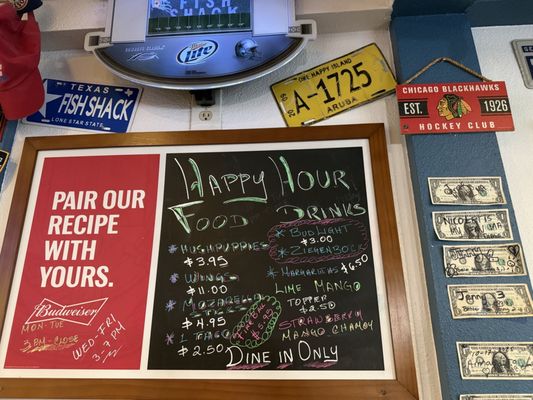 FISH SHACK
Miller Lite
TEXAS
FISH SHACK
LONE STAR STATE
ONE HAPPY ISLAND
A-1725
ARUBA
CHICAGO BLACKHAWKS
EST. 1926
HOCKEY CLUB
PAIR OUR
RECIPE
WITH
YOURS.
Budweiser
MON-TUE
3PM-CLOSE
WED-FRI
3-7PM
HAPPY HOUR
FOOD
* HUSHPUPPIES
$3.95
* WINGS
$11.00
* MOZARELLA
$4.95
* 1 TACO
$2.50
$5.95
DRINKS
* BUD LIGHT
$3.00
* ZIEGENBOCK
* MARGARITAS $6.50
LIME MANGO
TOPPER
$2.50
STRAWBERRY
MANGO CHAMOY
DINE IN ONLY
NICOLE IS